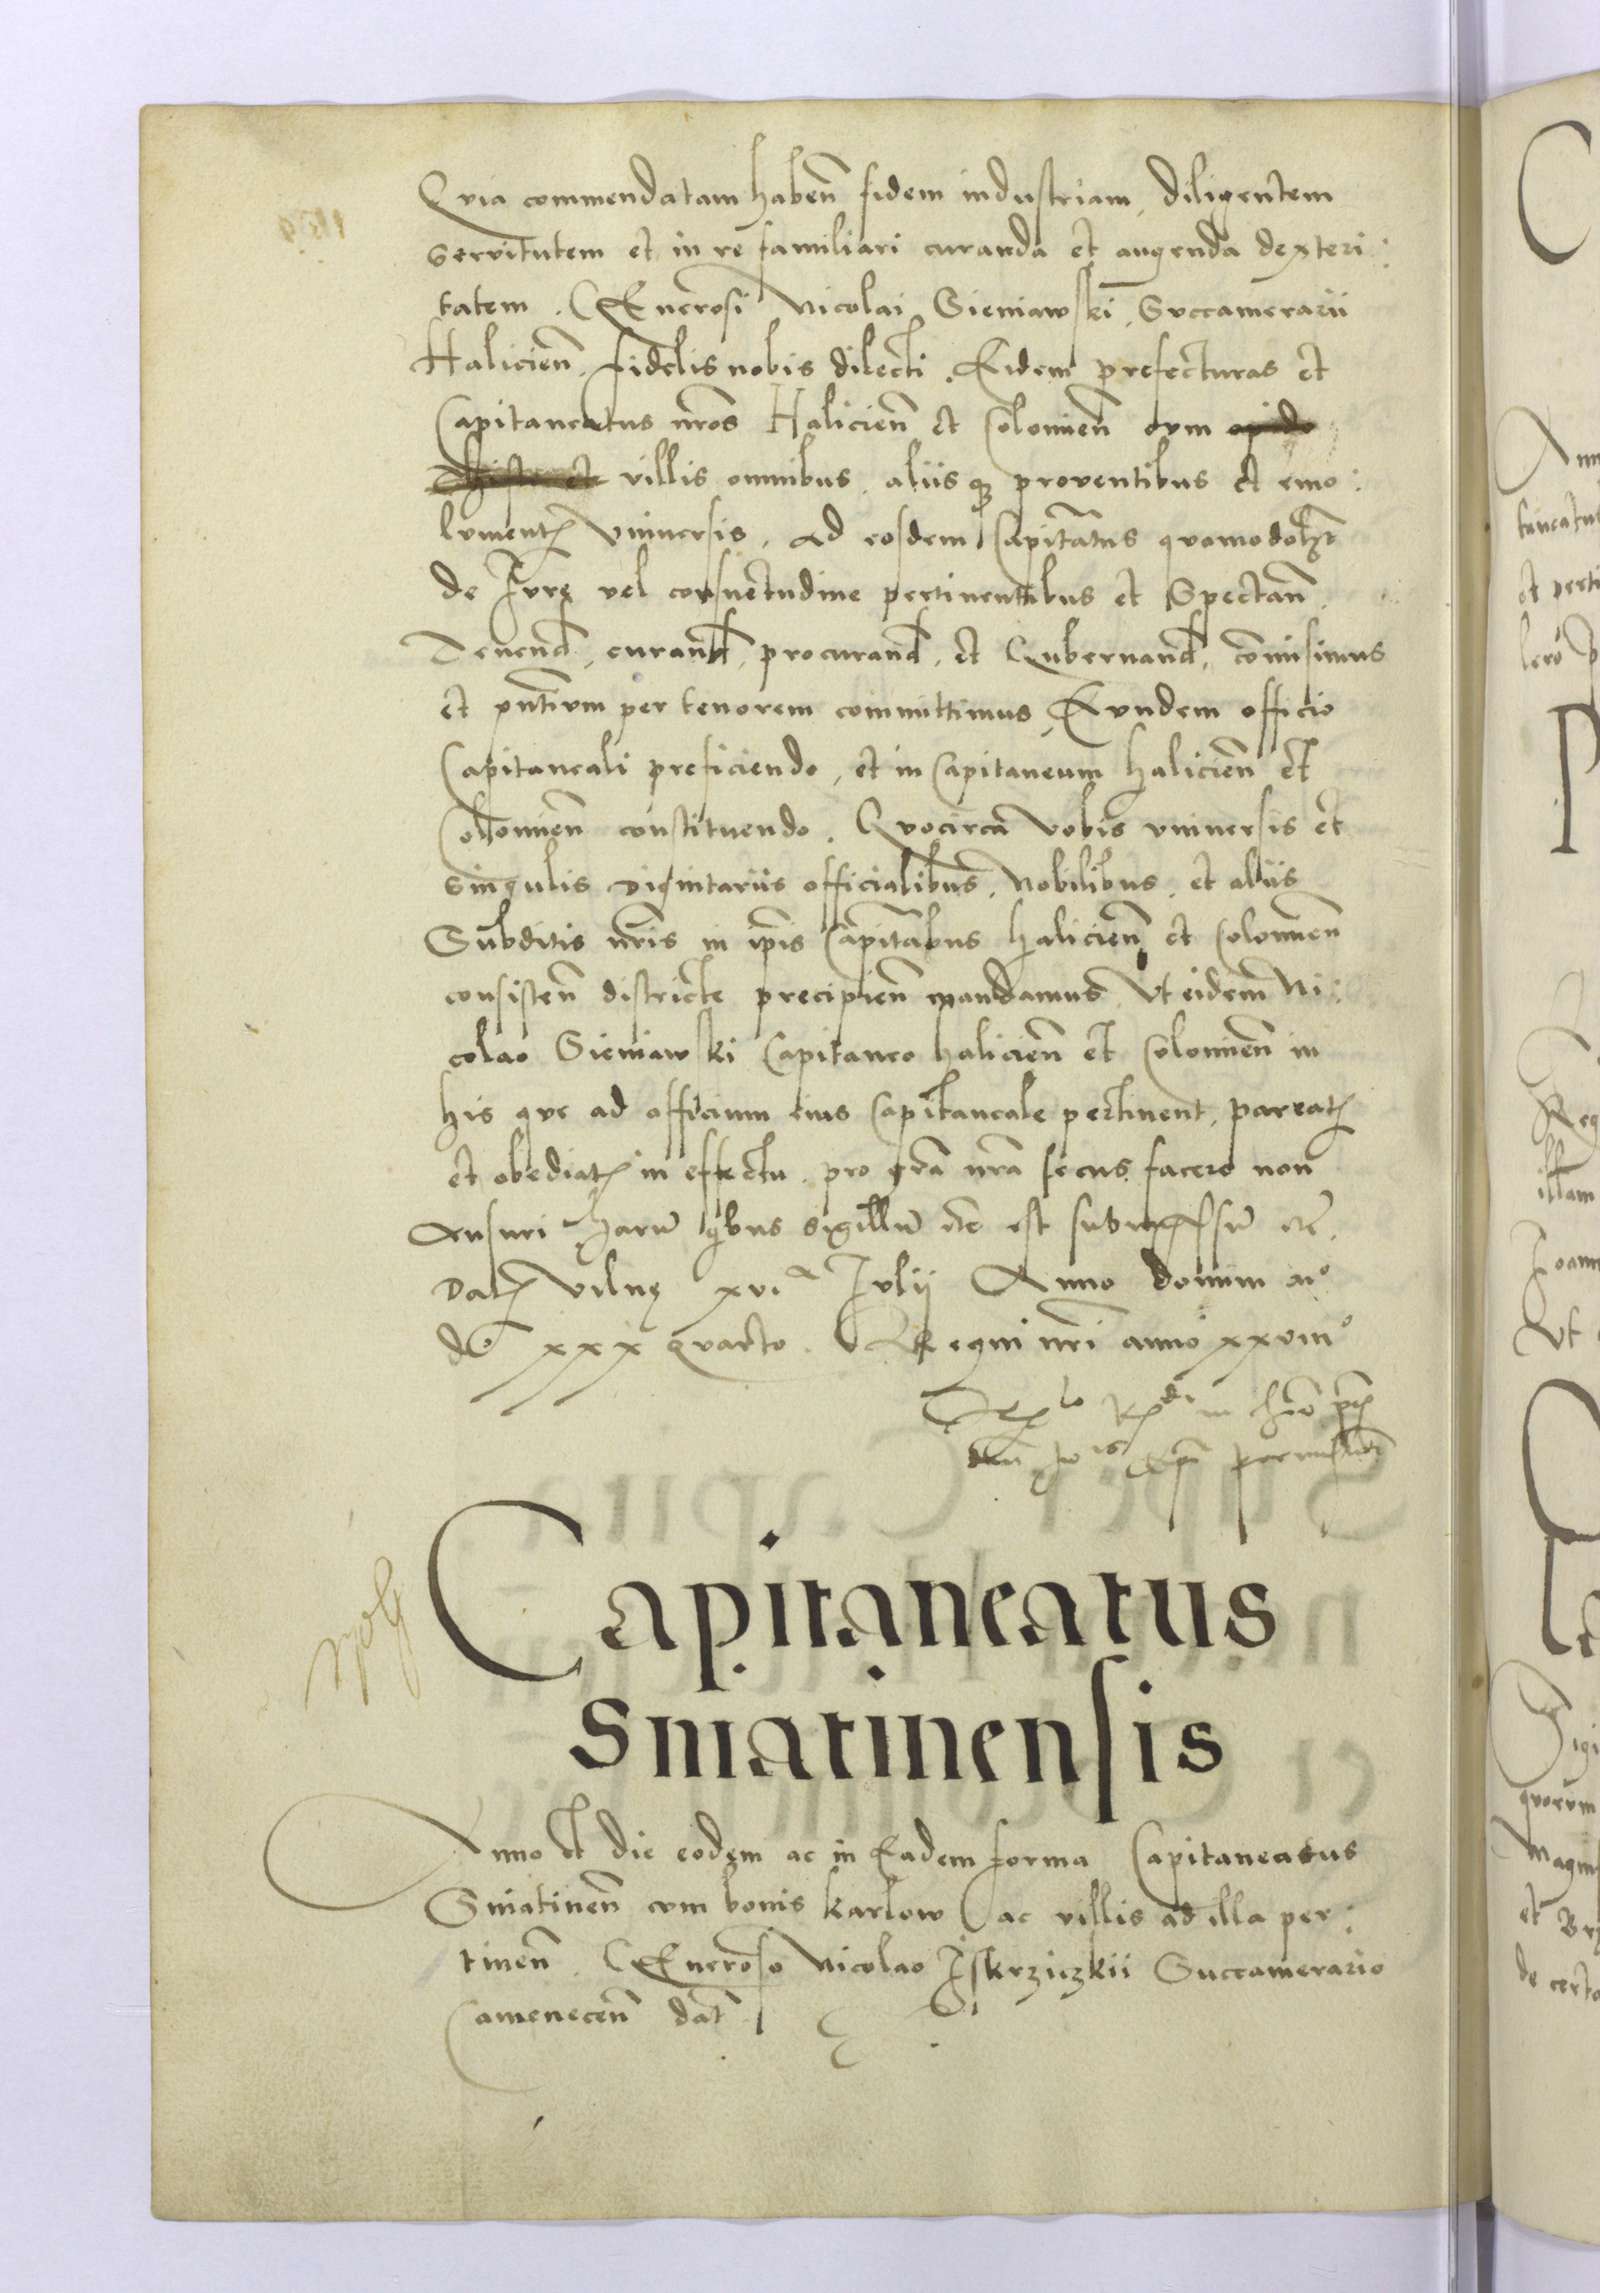 Quia commendatam haben̄ fidem industriam, diligentem
servitutem et in re familiari curanda et augenda dexteri:
tatem. Generosi Nicolai Sieniawski, Succamerarii
Halicien̄, fidelis nobis dilecti. Eidem prefecturas et
Capitaneatus nr̄os Halicien̄ et Colomien̄ cum opido
et villis omnibus, aliisq; proventibus et emo:
lument; universis, ad eosdem Capitāatus quomodolꝫt
de Iurę vel consuetudine pertinentibus et Spectan̄.
Tenend̄, curand̄, procurand̄, et Gubernand̄, com̄isimus
et pn̄tium per tenorem committimus, Eundem officio
Capitaneali preficiendo, et in Capitaneum halicien̄ et
Colomien̄ constituendo. Quocirca vobis universis et
singulis dignitariis officialibus, Nobilibus, et aliis
Subditis nr̄is in ip̄is Capitāatibus halicien̄ et Colomien̄
consisten̄ districte precipien̄ mandamus, ut eidem Ni:
colao Sieniawski Capitaneo halicien̄ et Colomien̄ in
his que ad officium eius Capitaneale pertinent, pareat;
et obediat; in effectu, pro grā nrā secus facere non
ausuri Harū qbus sigillū nrē est subimpressū etc̄.
Dat; Vilnę xvia Iulij Anno domini mº
dº xxx quarto. Regni nri anno xxviiiº
Capitaneatus
Sniatinensis
Anno et die eodem ac in Eadem forma Capitaneatus
Sniatinen̄ cum bonis Karlow ac villis ad illa per:
tinen̄. Generoso Nicolao Iskrziczkii Succamerario
Camenecen̄ dat̄